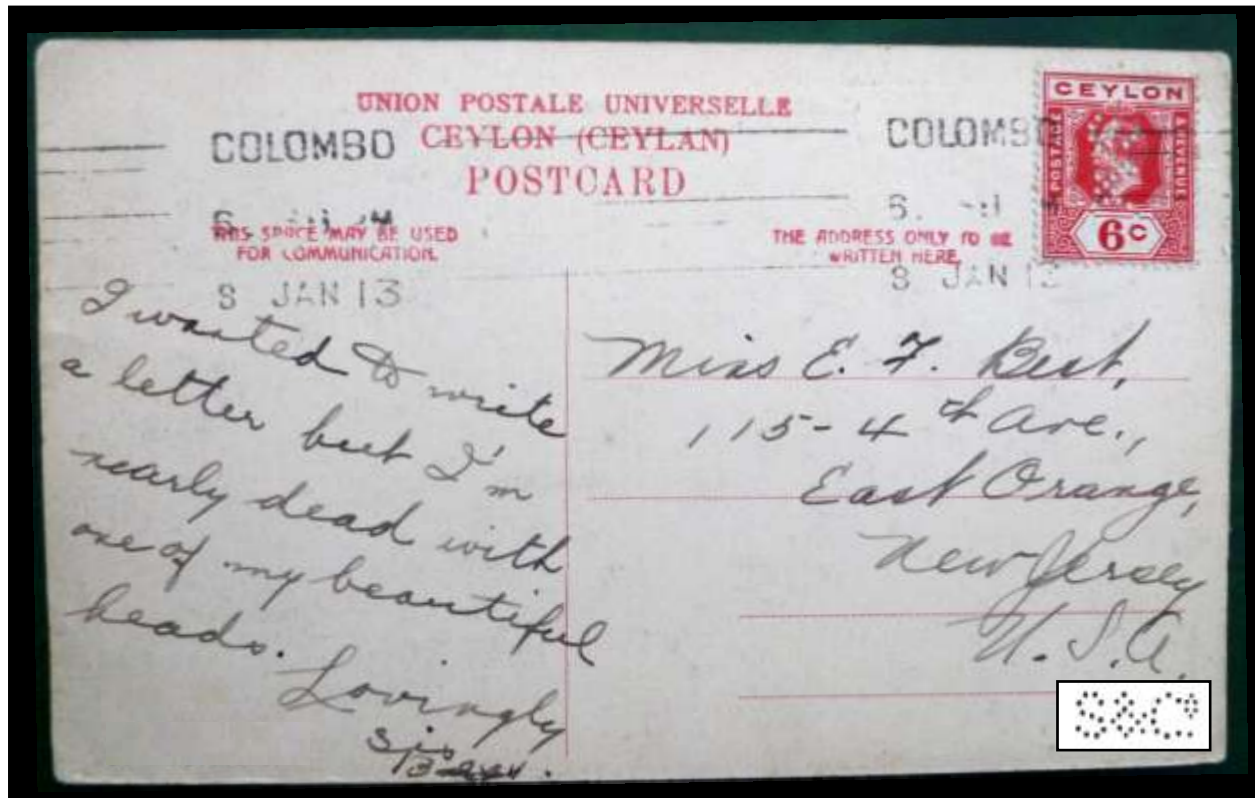 UNION POSTALE UNIVERSELLE
CEYLON (CEYLAN)
POSTCARD
COLOMBO
COLOMBO
CEYLON
POSTAGE
& REVENUE
6c
THIS SPACE MAY BE USED
FOR COMMUNICATION.
THE ADDRESS ONLY TO BE
WRITTEN HERE
8 JAN 13
8 JAN 13
I wanted to write
a letter but I'm
nearly dead with
one of my beautiful
heads.
Lovingly
Sis
Miss E. F. Best,
115-4th Ave.,
East Orange,
New Jersey
U.S.A.
S&Co